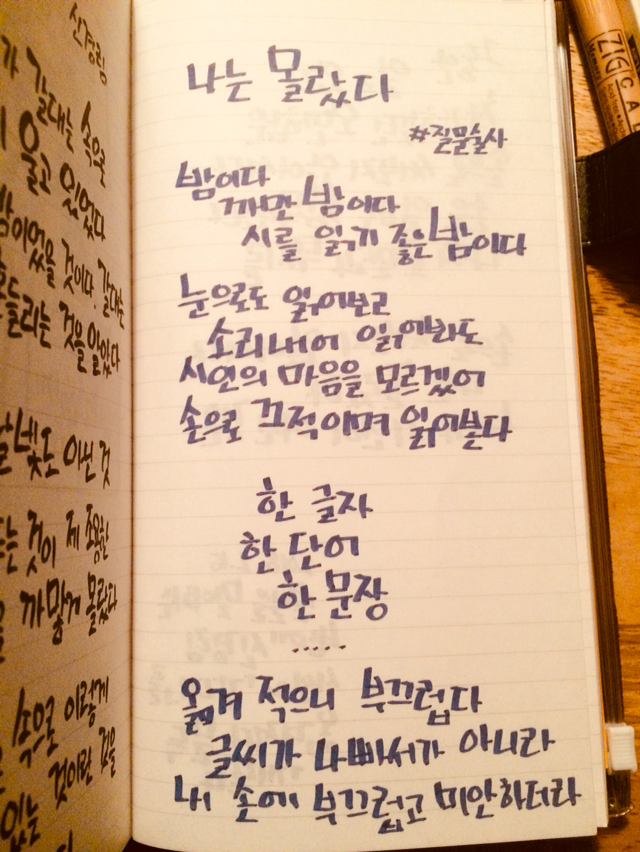 신경림
갈대는 속으로
울고 있었다
밤이었을 것이다. 갈대는
흔들리는 것을 알았다
도 아닌 것
는 것이 제 조용한
까맣게 몰랐다
속으로 이렇게
있는 것이란 것을
나는 몰랐다
#질물술사
밤이다
까만 밤이다
시를 읽기 좋은 밤이다
눈으로도 읽어보고
소리내어 읽어봐도
시인의 마음을 모르겠어
손으로 끄적이며 읽어본다
한 글자
한 단어
한 문장
.....
옮겨 적으니 부끄럽다
글씨가 나빠서가 아니라
내 손에 부끄럽고 미안하더라
ZIG